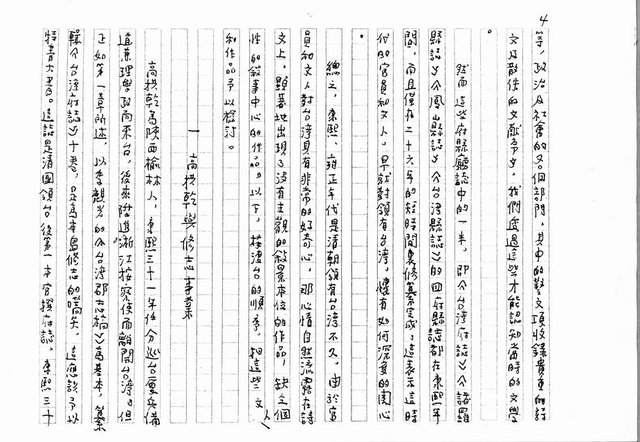 4
等，政治及社會的各個部門，其中的藝文項收錄貴重的詩
文及散佚的文獻予夕，我們透過這些才能認知當時的文學
。
然而這些府縣廳誌中的一半，即《台灣府誌》《諸羅
縣誌》《鳳山縣誌》《台灣縣誌》的四府縣誌都在康熙年
間，而且僅在二十六年的短時間裏修纂完成，這表示這時
代的官員和文人，早就對領有台灣，懷有如何深度的関心
。
總之，康熙、雍正年代是清朝領有台灣不久，由於官
員和文人對台灣具有非常的好奇心，那心情自然流露在詩
文上，顯著地出現了沒有主觀的敘景本位的作品，缺乏個
性的敘事中心的作品。以下，按渡台的順序，把這些文人
和作品予以探討。
一 高拱乾與修志事業
高拱乾為陝西榆林人，康熙三十一年任分巡台廈兵備
道兼理學政而來台，後來陞進浙江按察使而離開台灣。但
正如第一章所述，以季麒光的《台灣郡志稿》為基本，纂
輯《台灣府誌》十卷，是為本島修志的嚆矢，這應該予以
特書大書。這誌是清國領台後第一本官撰府誌，康熙三十